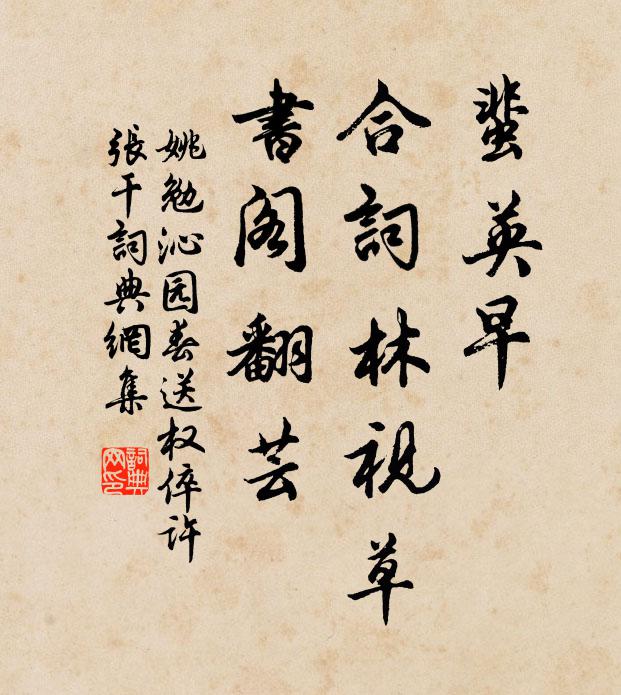 蜚英早
合詞林視草
書阁翻芸
姚勉沁园春送权倅许
張干詞典網集
詞典网印